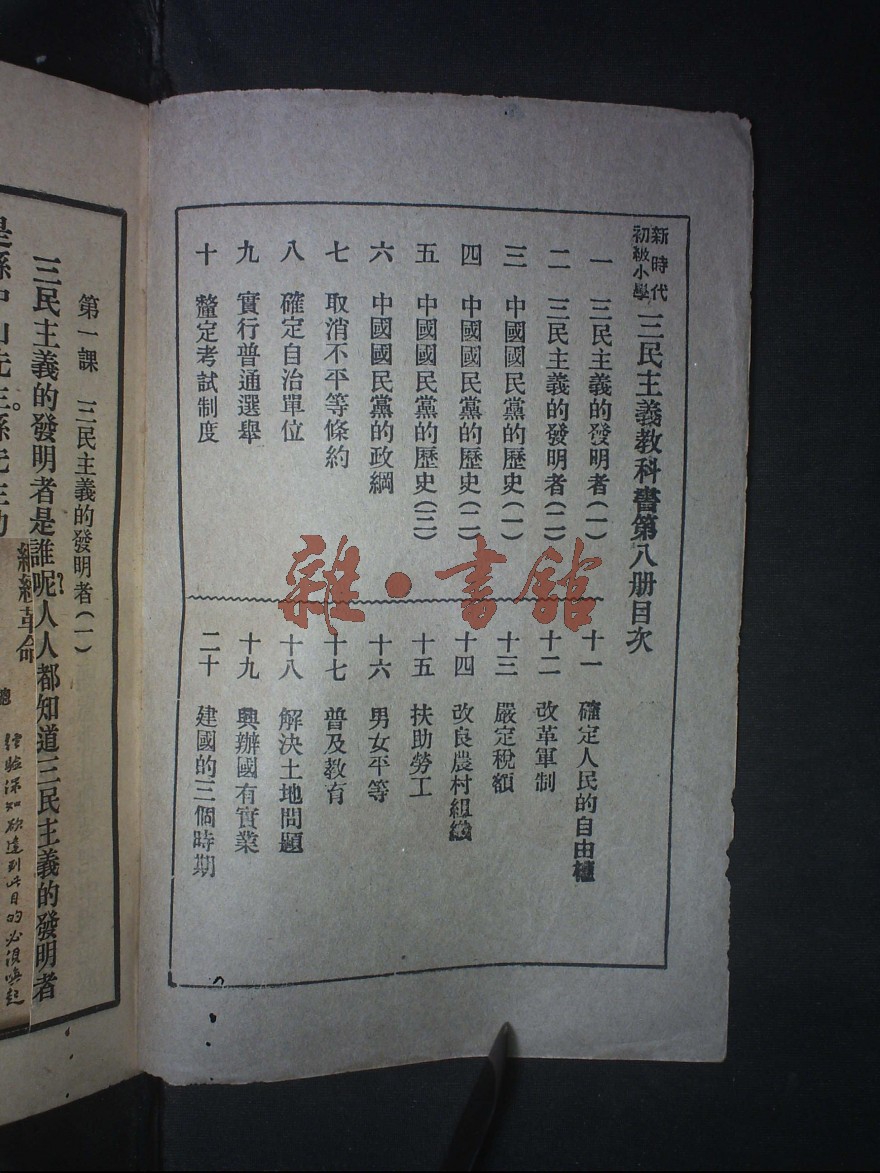 新時代
初級小學
三民主義教科書第八册目次
一 三民主義的發明者(一)
二 三民主義的發明者(二)
三 中國國民黨的歷史(一)
四 中國國民黨的歷史(二)
五 中國國民黨的歷史(三)
六 中國國民黨的政綱
七 取消不平等條約
八 確定自治單位
九 實行普通選舉
十 釐定考試制度
十一 確定人民的自由權
十二 改革軍制
十三 嚴定稅額
十四 改良農村組織
十五 扶助勞工
十六 男女平等
十七 普及教育
十八 解決土地問題
十九 興辦國有實業
二十 建國的三個時期
雜·書館
第一課 三民主義的發明者(一)
三民主義的發明者是誰呢?人人都知道三民主義的發明者
是孫中山先生。孫先生
繼續革命
經驗深知欲達到此目的必須喚起